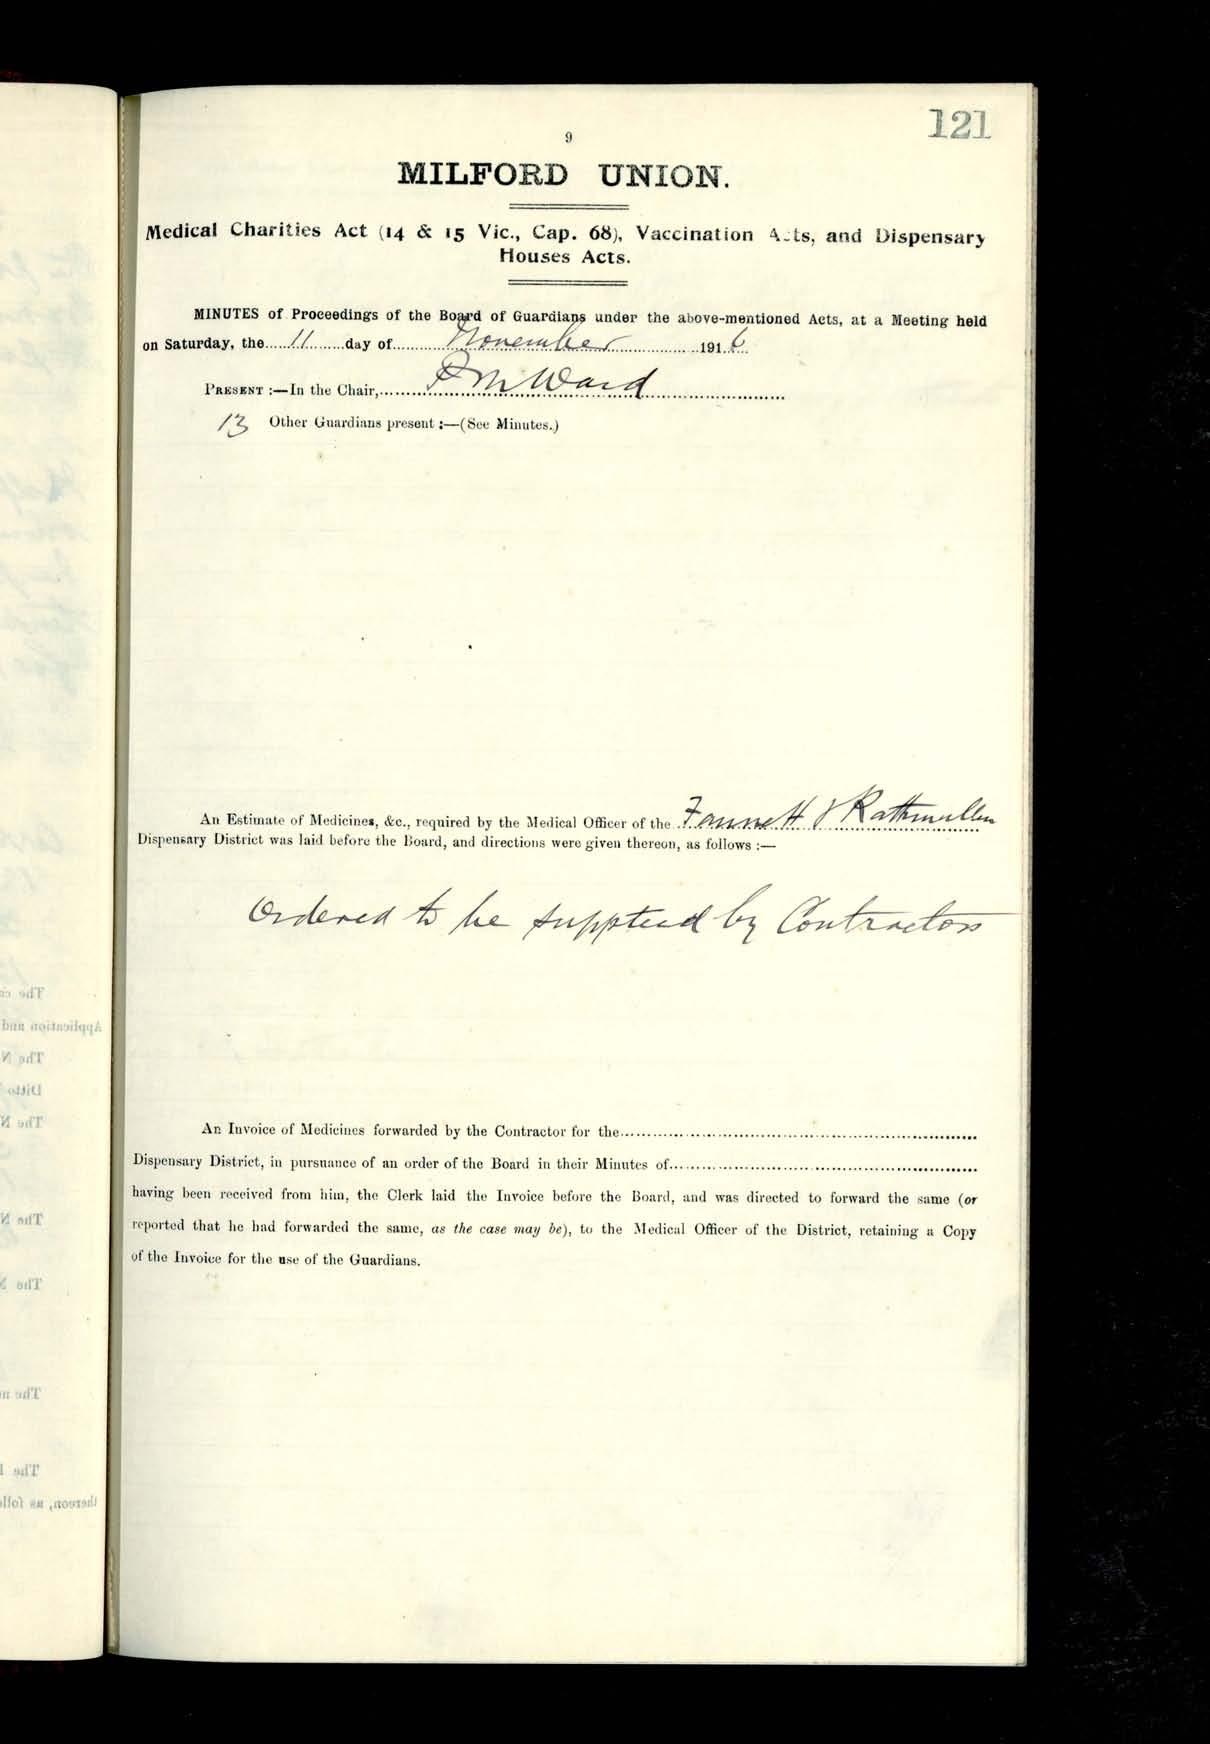 121
9
MILFORD UNION.
Medical Charities Act (14 & 15 Vic., Cap. 68), Vaccination Acts, and Dispensary
Houses Acts.
MINUTES of Proceedings of the Board of Guardians under the above-mentioned Acts, at a Meeting held
on Saturday, the 11 day of November 1916
PRESENT :—In the Chair, P M Ward
13 Other Guardians present :—(See Minutes.)
An Estimate of Medicines, &c., required by the Medical Officer of the Fannett & Rathmullen
Dispensary District was laid before the Board, and directions were given thereon, as follows :—
Ordered to be supplied by Contractors
An Invoice of Medicines forwarded by the Contractor for the
Dispensary District, in pursuance of an order of the Board in their Minutes of
having been received from him, the Clerk laid the Invoice before the Board, and was directed to forward the same (or
reported that he had forwarded the same, as the case may be), to the Medical Officer of the District, retaining a Copy
of the Invoice for the use of the Guardians.